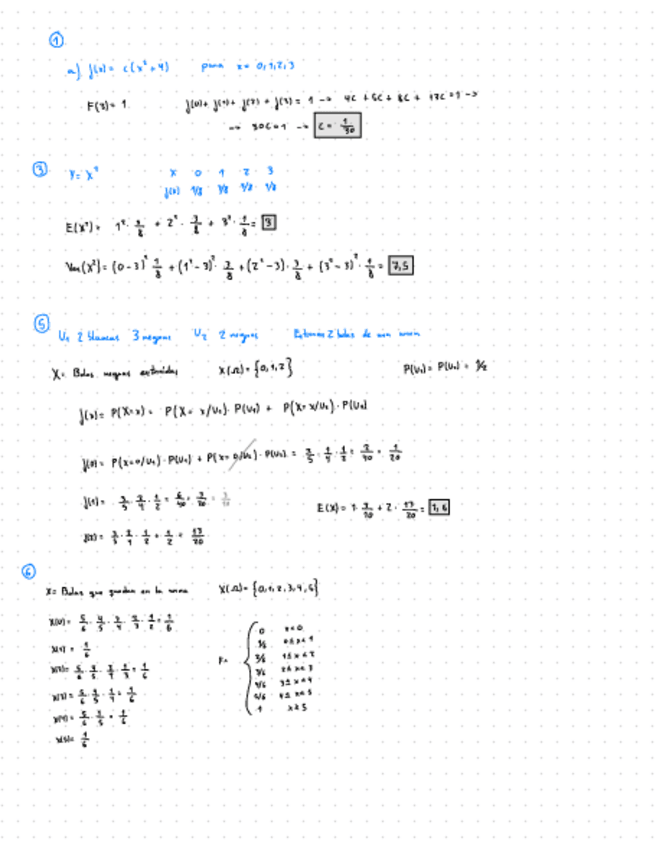 ①
a) f(x) = c(x² + 4) para x = 0, 1, 2, 3
F(3) = 1 f(0) + f(1) + f(2) + f(3) = 1 → 4c + 5c + 8c + 13c = 1 →
→ 30c = 1 → c = 1/30
③ Y = X² X 0 1 2 3
f(x) 1/8 3/8 3/8 1/8
E(X²) = 1² · 3/8 + 2² · 3/8 + 3² · 1/8 = 3
Var(X²) = (0-3)² 1/8 + (1²-3)² · 3/8 + (2²-3) · 3/8 + (3²-3)² · 1/8 = 7,5
⑤
U₁ 2 blancas 3 negras U₂ 2 negras 2 bolas de una urna
X = Bolas negras extraídas X(Ω) = {0, 1, 2} P(U₁) = P(U₂) = 1/2
f(x) = P(X=x) = P(X=x/U₁) · P(U₁) + P(X=x/U₂) · P(U₂)
f(0) = P(X=0/U₁) · P(U₁) + P(X=0/U₂) · P(U₂) = 2/5 · 1/4 · 1/2 = 2/40 = 1/20
f(1) = 3/5 · 2/4 · 1/2 = 6/40 = 3/20
E(X) = 1 · 3/10 + 2 · 13/20 = 1,6
f(2) = 3/5 · 2/4 · 1/2 + 1/2 = 13/20
⑥
X = Bolas que quedan en la urna X(Ω) = {0, 1, 2, 3, 4, 5}
X(0) = 5/6 · 4/5 · 3/4 · 2/3 · 1/2 = 1/6
X(1) = 1/6
X(2) = 5/6 · 4/5 · 3/4 · 1/3 = 1/6
X(3) = 5/6 · 4/5 · 1/4 = 1/6
X(4) = 5/6 · 1/5 = 1/6
X(5) = 1/6
F =
0 x < 0
1/6 0 ≤ x < 1
2/6 1 ≤ x < 2
3/6 2 ≤ x < 3
4/6 3 ≤ x < 4
5/6 4 ≤ x < 5
1 x ≥ 5